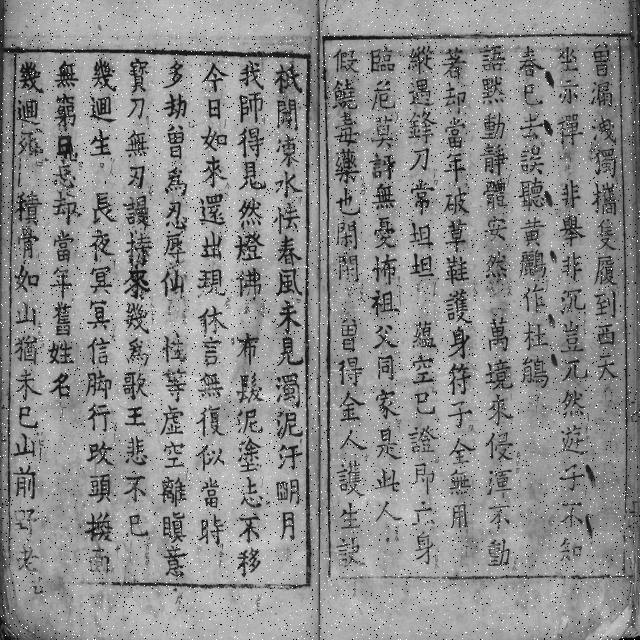 曾漏洩獨攜隻履到西天
坐亦禪 非舉非沉豈兀然遊子不知
春已去誤聽黃鸝作杜鵑
語默動靜體安然 萬境來侵渾不動
著却當年破草鞋護身符子全無用
縱遇鋒刀常坦坦 蘊空已證即亡身
臨危莫訝無憂怖祖父同家是此人
假饒毒藥也閑閑 曾得金人護生訣
祇闍凍水怯春風未見濁泥汙明月
我師得見然燈佛 布髮泥塗志不移
今日如來還出現休言無復似當時
多劫曾為忍辱仙 性等虛空離瞋恚
寶刀無刃謾持來幾為歌王悲不已
幾迴生 長夜冥冥信脚行改頭換面
無窮日忘却當年舊姓名
幾迴死 積骨如山猶未已山前野老